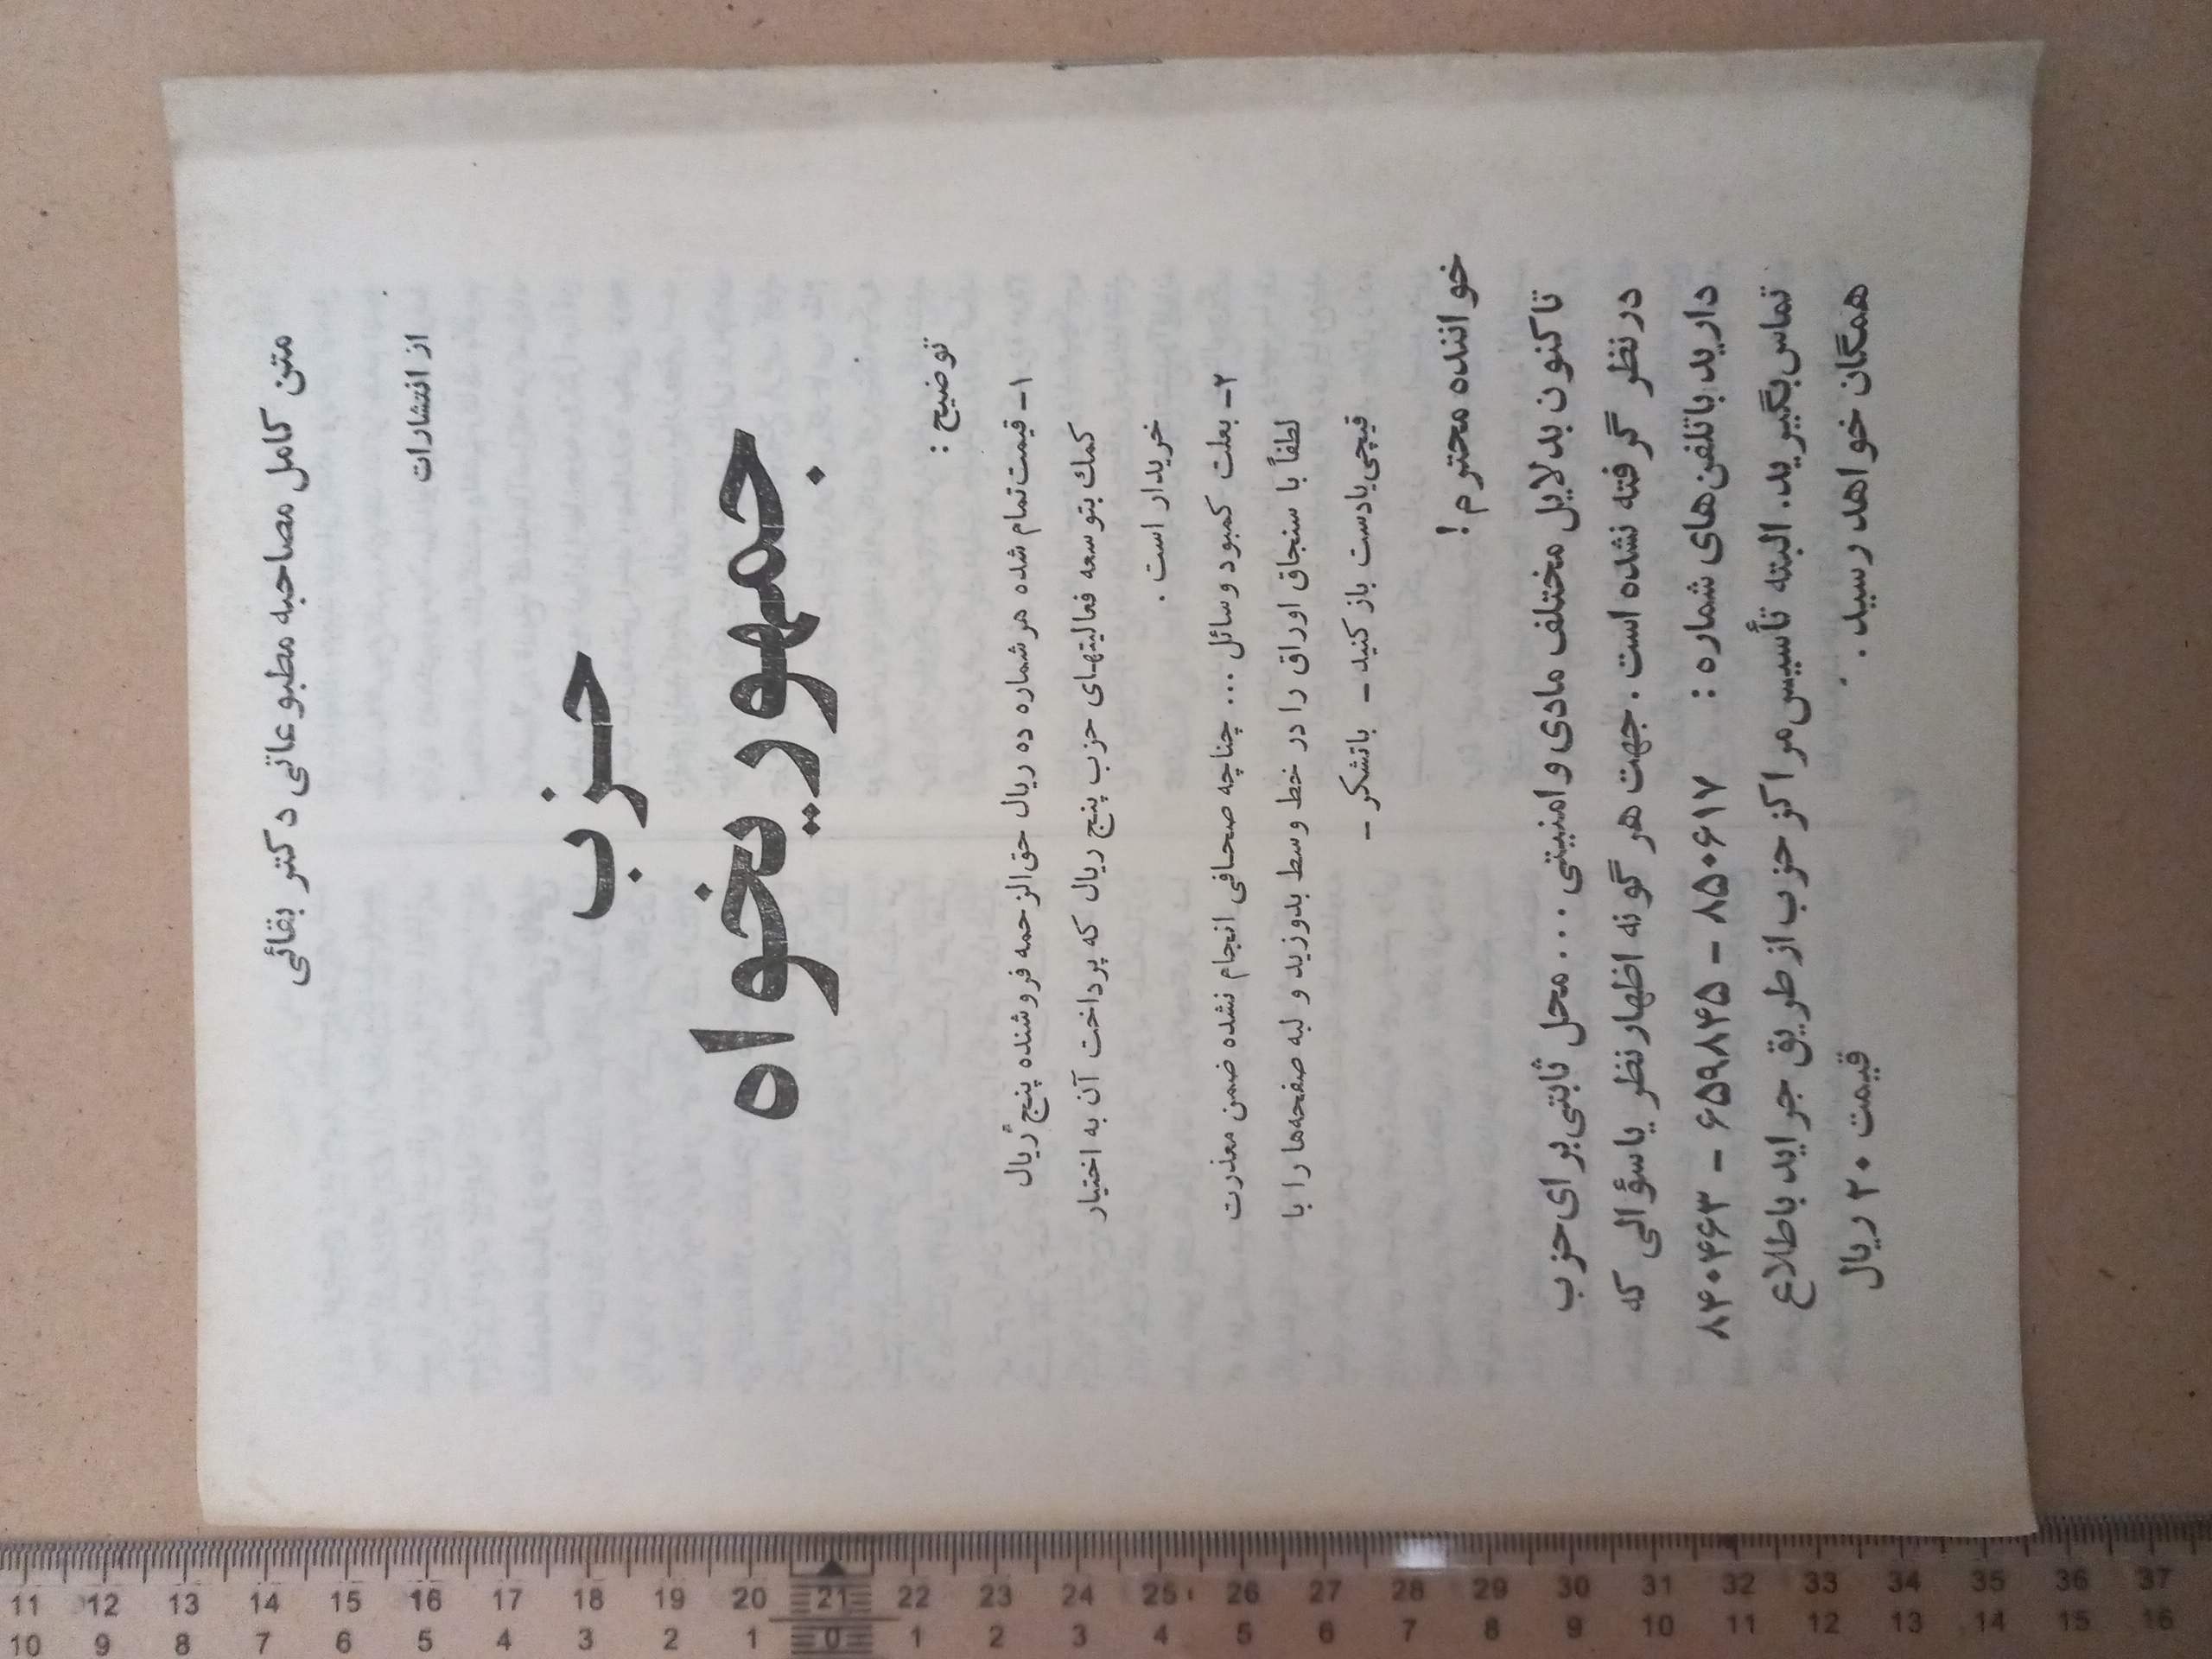 متن کامل مصاحبه مطبوعاتی دکتر بقائی
از انتشارات
حزب
جمهوریخواه
توضیح :
۱- قیمت تمام شده هر شماره ده ریال حق‌الزحمه فروشنده پنج ریال
کمک بتوسعه فعالیتهای حزب پنج ریال که پرداخت آن به اختیار
خریدار است .
۲- بعلت کمبود وسائل ... چناچه صحافی انجام نشده ضمن معذرت
لطفاً با سنجاق اوراق را در خط وسط بدوزید و لبه صفحه‌ها را با
قیچی یا دست باز کنید - باتشکر -
خواننده محترم !
تاکنون بدلایل مختلف مادی و امنیتی ... محل ثابتی برای حزب
در نظر گرفته نشده است . جهت هر گونه اظهار نظر یا سؤالی که
دارید با تلفن‌های شماره : ۸۵۰۶۱۷ - ۶۵۹۸۴۵ - ۸۴۰۴۶۳
تماس بگیرید. البته تأسیس مراکز حزب از طریق جراید باطلاع
همگان خواهد رسید .
قیمت ۲۰ ریال
11 12 13 14 15 16 17 18 19 20 21 22 23 24 25 26 27 28 29 30 31 32 33 34 35 36 37
10 9 8 7 6 5 4 3 2 1 0 1 2 3 4 5 6 7 8 9 10 11 12 13 14 15 16